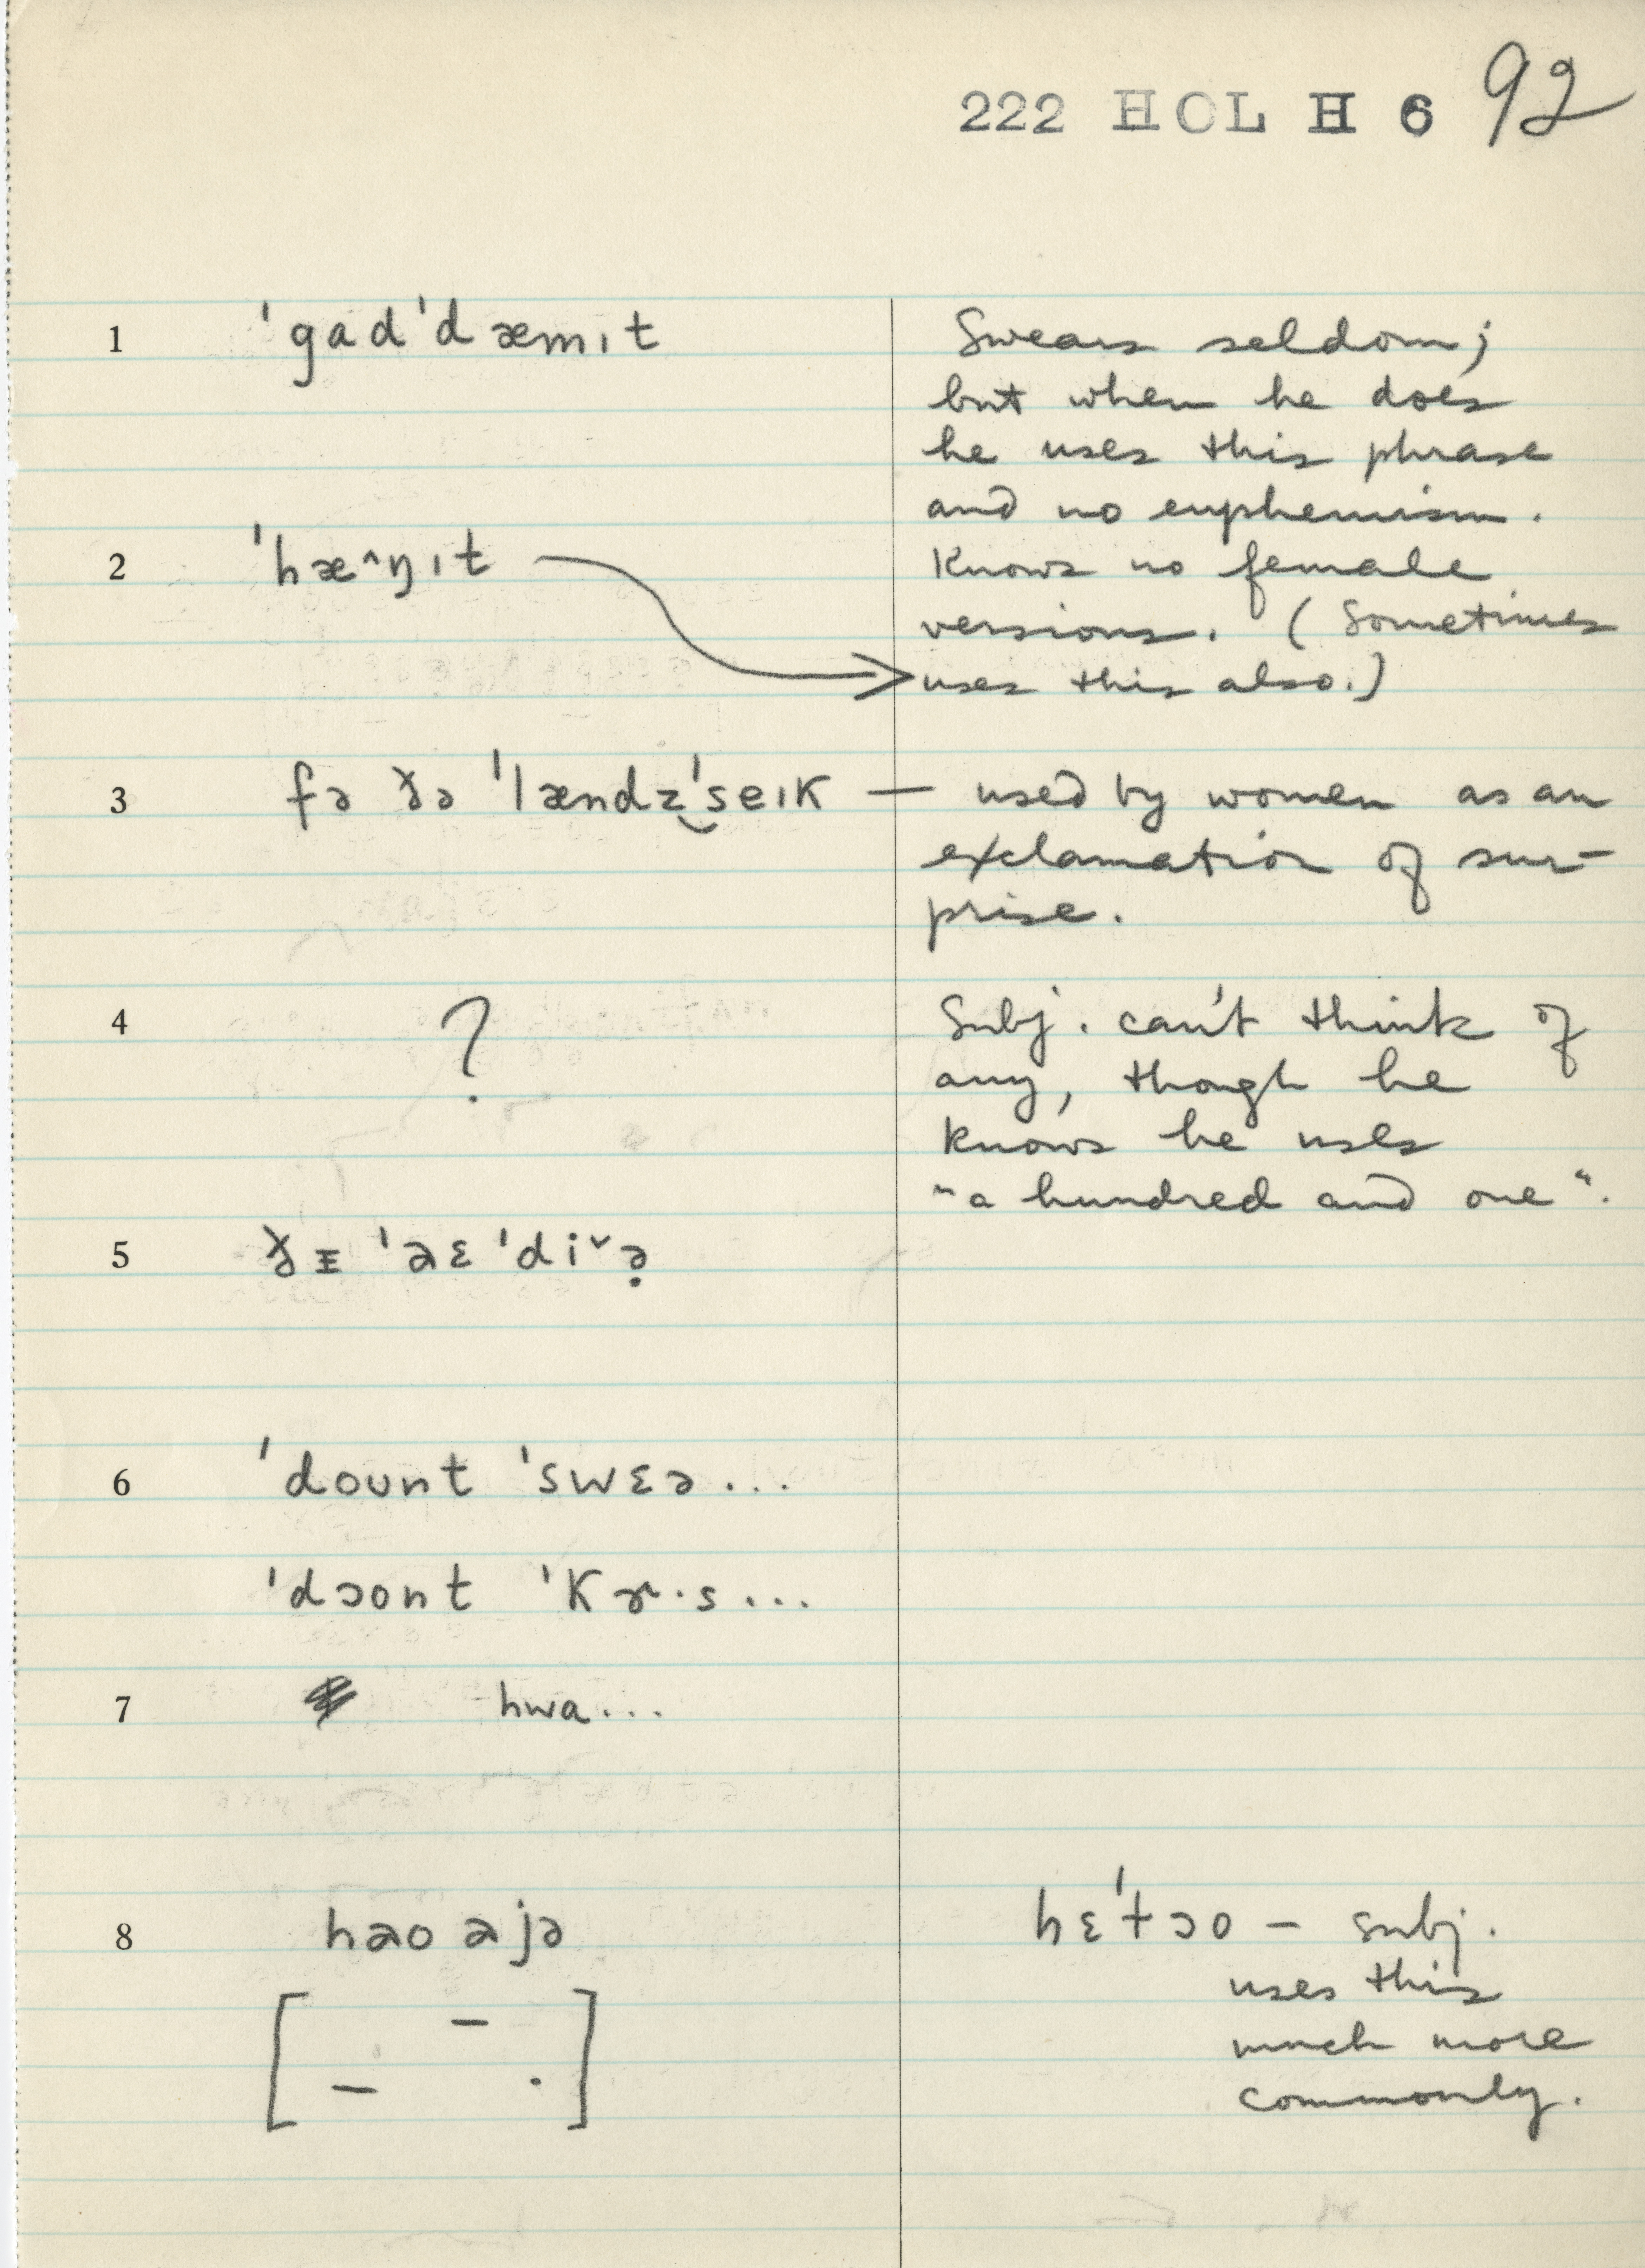 222 HOL H 6 92
1 ˈgadˈdæmɪt
Swears seldom;
but when he does
he uses this phrase
and no euphemism.
2 ˈhæ^ŋɪt
Knows no female
versions. (Sometimes
uses this also.)
3 fə ðə ˈlændz̮ˈseɪk — used by women as an
exclamation of sur-
prise.
4 ?
Subj. can't think of
any, though he
knows he uses
"a hundred and one".
5 ðɪ ˈaɛ ˈdiˇə̣
6 ˈdount ˈswɛə...
ˈdɔont ˈkɚ·s...
7 hwa...
8 hao ajə
hɛˈtɔo – subj.
uses this
much more
commonly.
[ – – . ]